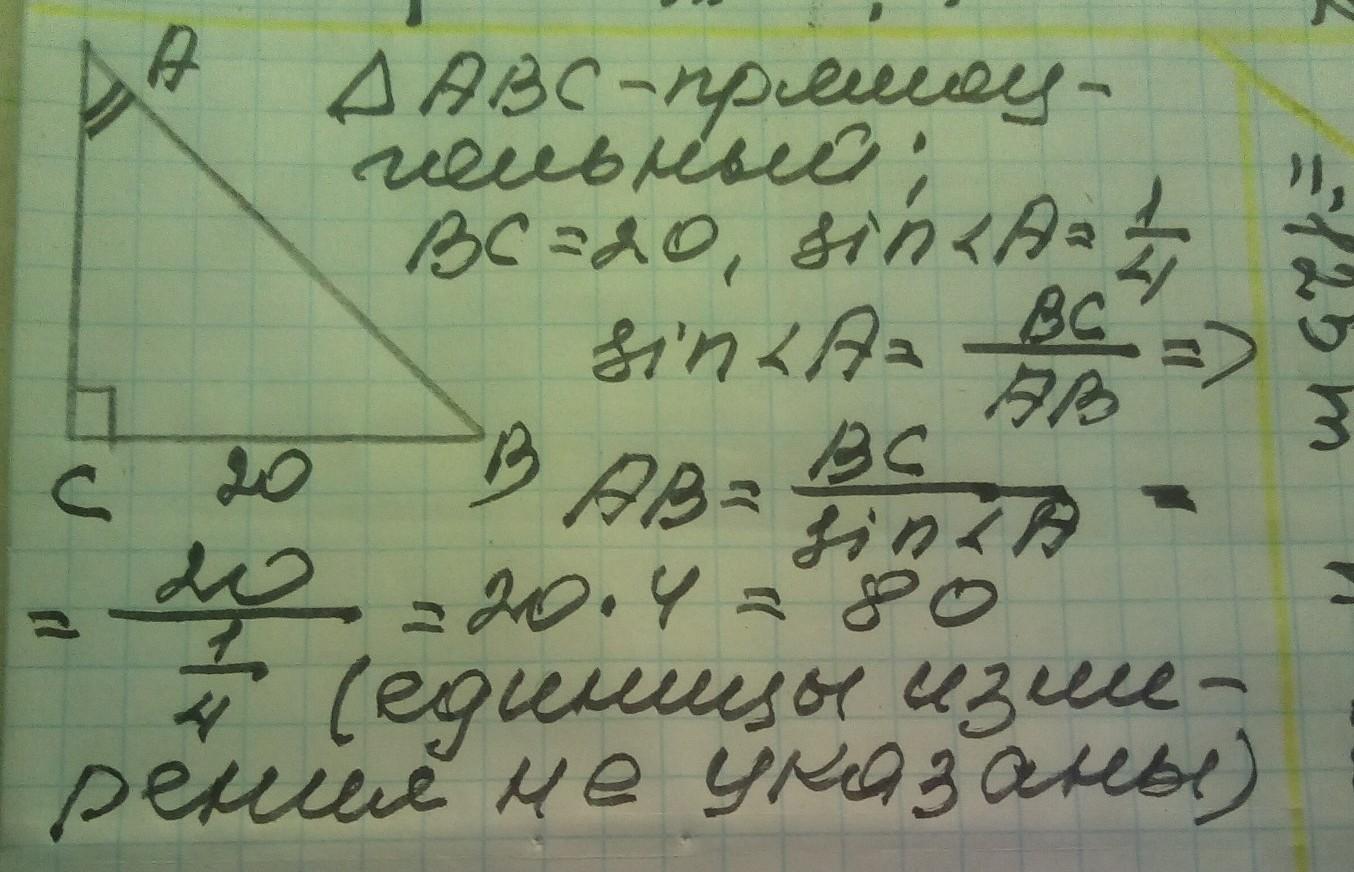 A
△ABC - прямоу-
гольный;
BC = 20, sin<A = 1/4
sin<A = BC/AB =>
C 20 B
AB = BC/sin<A =
= 20/(1/4) = 20·4 = 80
(единицы изме-
рения не указаны)